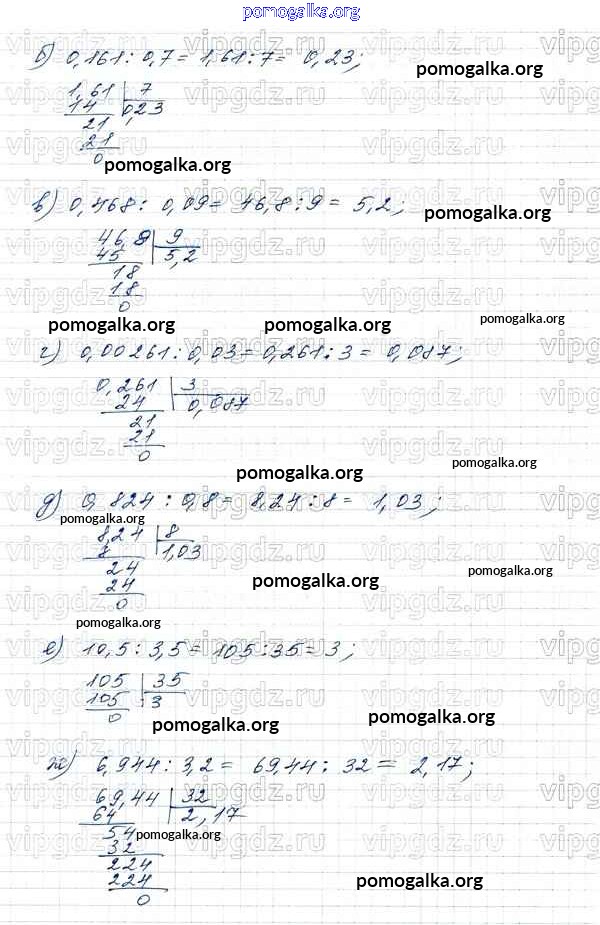 pomogalka.org
б) 0,161 : 0,7 = 1,61 : 7 = 0,23;
pomogalka.org
1,61 | 7
14 0,23
21
21
0
pomogalka.org
в) 0,468 : 0,09 = 46,8 : 9 = 5,2;
pomogalka.org
46,8 | 9
45 5,2
18
18
0
pomogalka.org
pomogalka.org
pomogalka.org
г) 0,00261 : 0,03 = 0,261 : 3 = 0,087;
0,261 | 3
24 0,087
21
21
0
pomogalka.org
pomogalka.org
д) 0,824 : 0,8 = 8,24 : 8 = 1,03;
pomogalka.org
8,24 | 8
8 1,03
24
24
0
pomogalka.org
pomogalka.org
pomogalka.org
е) 10,5 : 3,5 = 105 : 35 = 3;
105 | 35
105 3
0
pomogalka.org
pomogalka.org
ж) 6,944 : 3,2 = 69,44 : 32 = 2,17;
69,44 | 32
64 2,17
54
pomogalka.org
32
224
224
0
pomogalka.org
vipgdz.ru